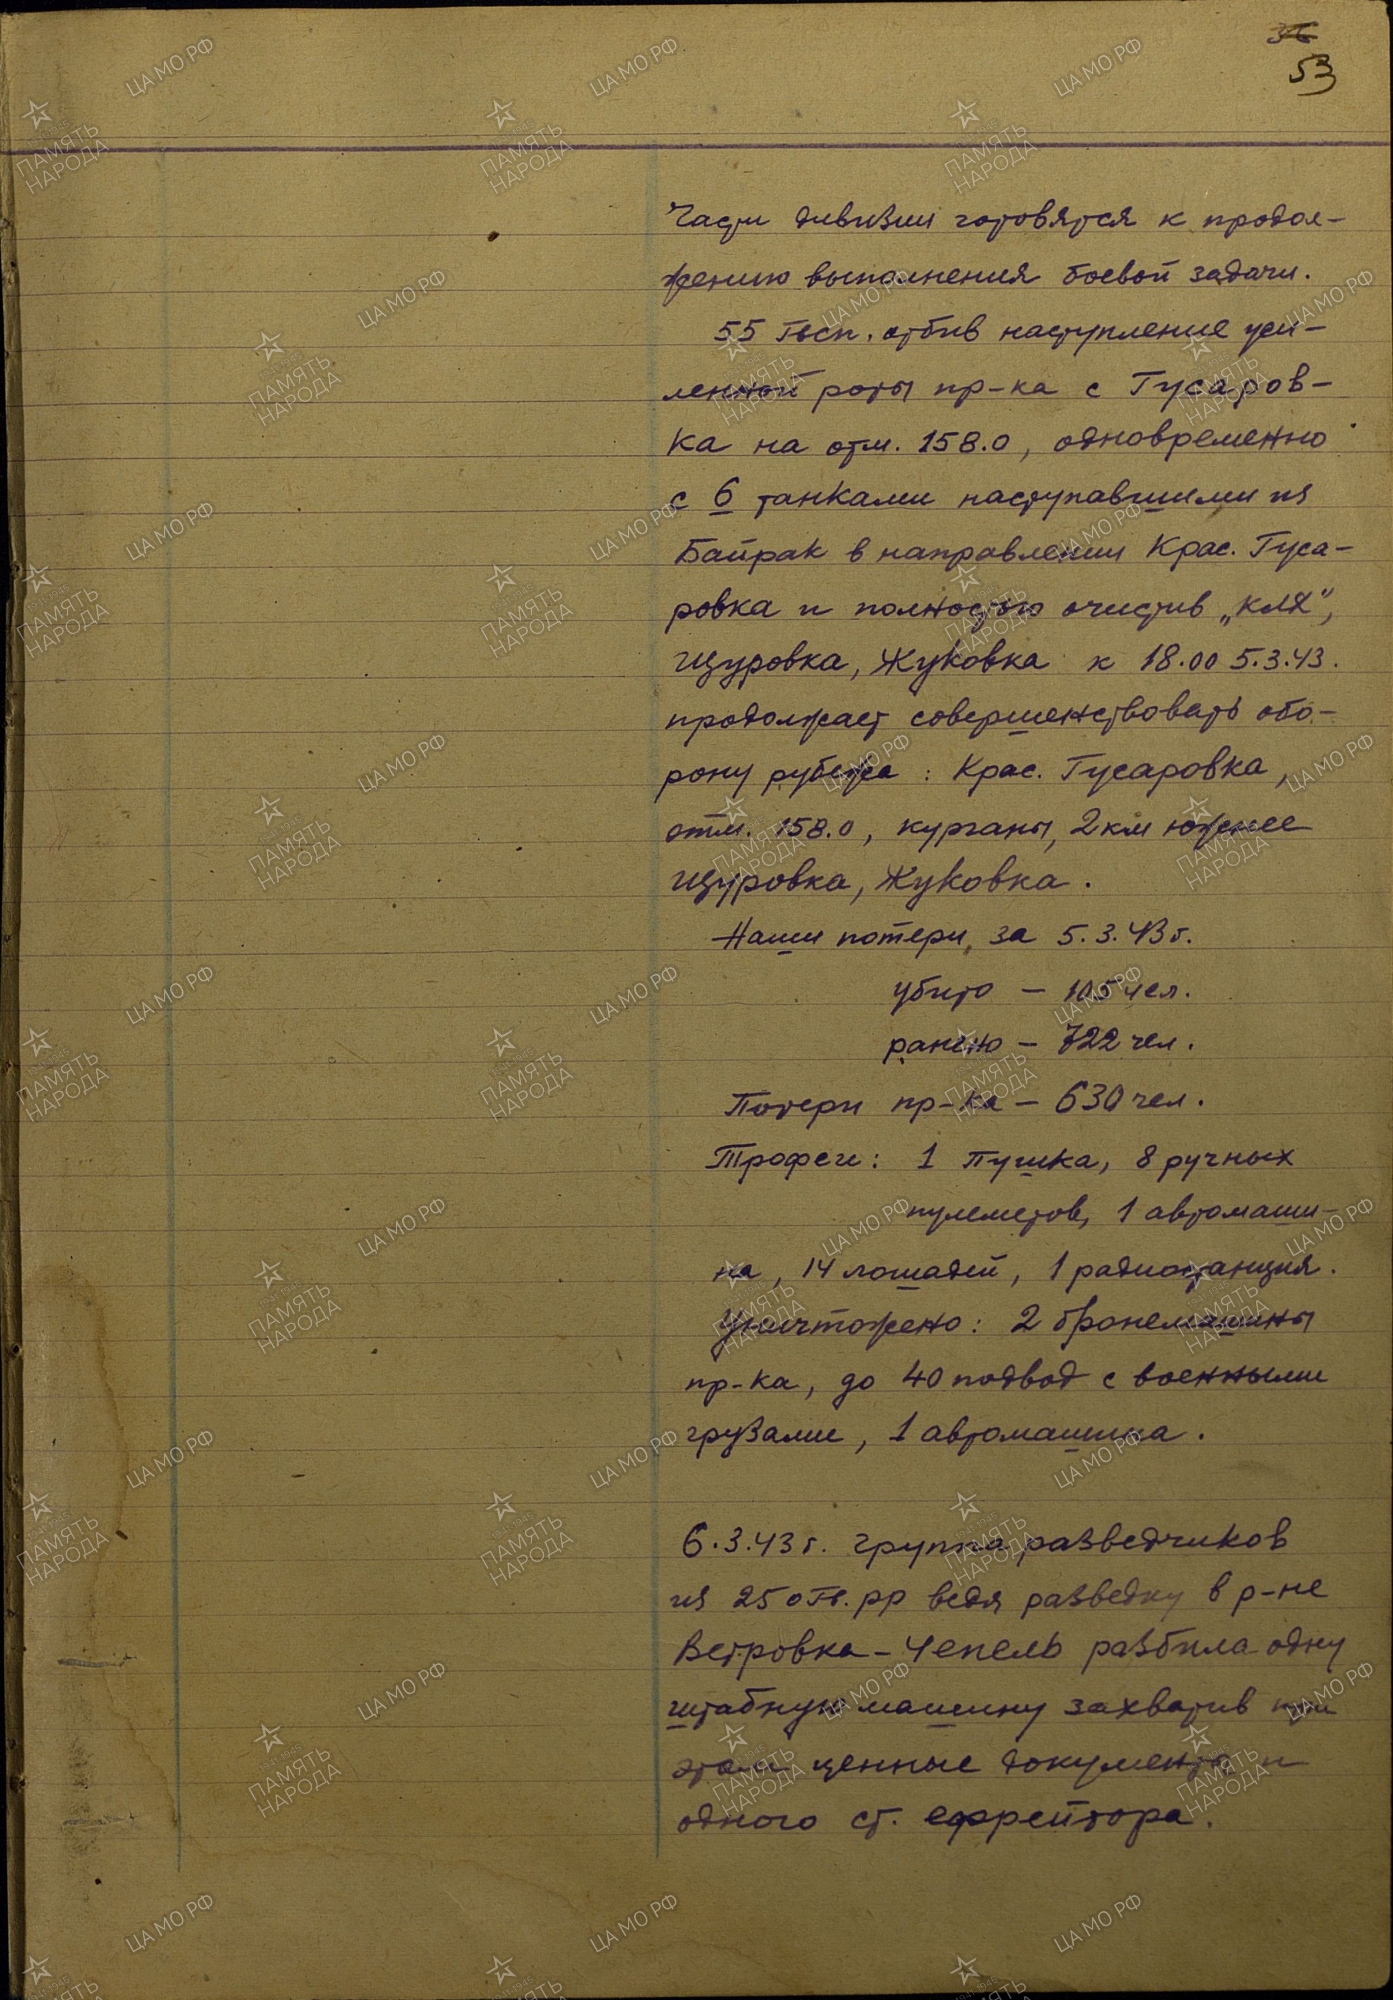 36
53
Части дивизии готовятся к продол-
жению выполнения боевой задачи.
55 Гвсп. отбив наступление уси-
ленной роты пр-ка с Гусаров-
ка на отм. 158.0, одновременно
с 6 танками наступавшими из
Байрак в направлении Крас. Гуса-
ровка и полностью очистив „КЛЯ",
Щуровка, Жуковка к 18.00 5.3.43.
продолжает совершенствовать обо-
рону рубежа: Крас. Гусаровка,
отм. 158.0, курганы, 2 км южнее
Щуровка, Жуковка.
Наши потери за 5.3.43 г.
убито – 105 чел.
ранено – 722 чел.
Потери пр-ка – 630 чел.
Трофеи: 1 пушка, 8 ручных
пулеметов, 1 автомаши-
на, 14 лошадей, 1 радиостанция.
Уничтожено: 2 бронемашины
пр-ка, до 40 подвод с военными
грузами, 1 автомашина.
6.3.43 г. группа разведчиков
из 25 оГв. рр ведя разведку в р-не
Ветровка – Чепель разбила одну
штабную машину захватив при
этом ценные документы и
одного ст. ефрейтора.